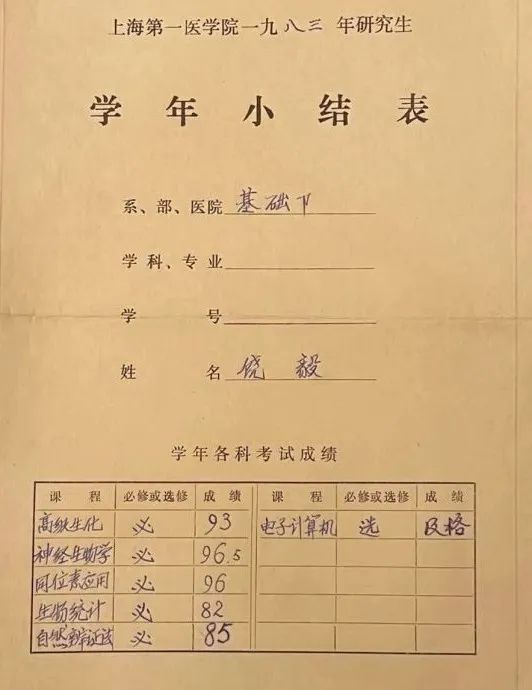 上海第一医学院一九八三年研究生
学年小结表
系、部、医院 基础下
学科、专业
学号
姓名 饶毅
学年各科考试成绩
课程 必修或选修 成绩 课程 必修或选修 成绩
高级生化 必 93 电子计算机 选 及格
神经生物学 必 96.5
同位素应用 必 96
生物统计 必 82
自然辩证法 必 85